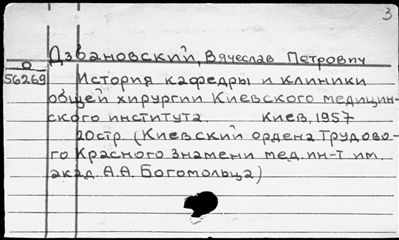 3
Дзвановский, Вячеслав Петрович
О
56269 История кафедры и клиники
общей хирургии Киевского медицин-
ского института. Киев, 1957
20стр. (Киевский ордена Трудово-
го Красного Знамени мед. ин-т им.
акад. А.А. Богомольца)